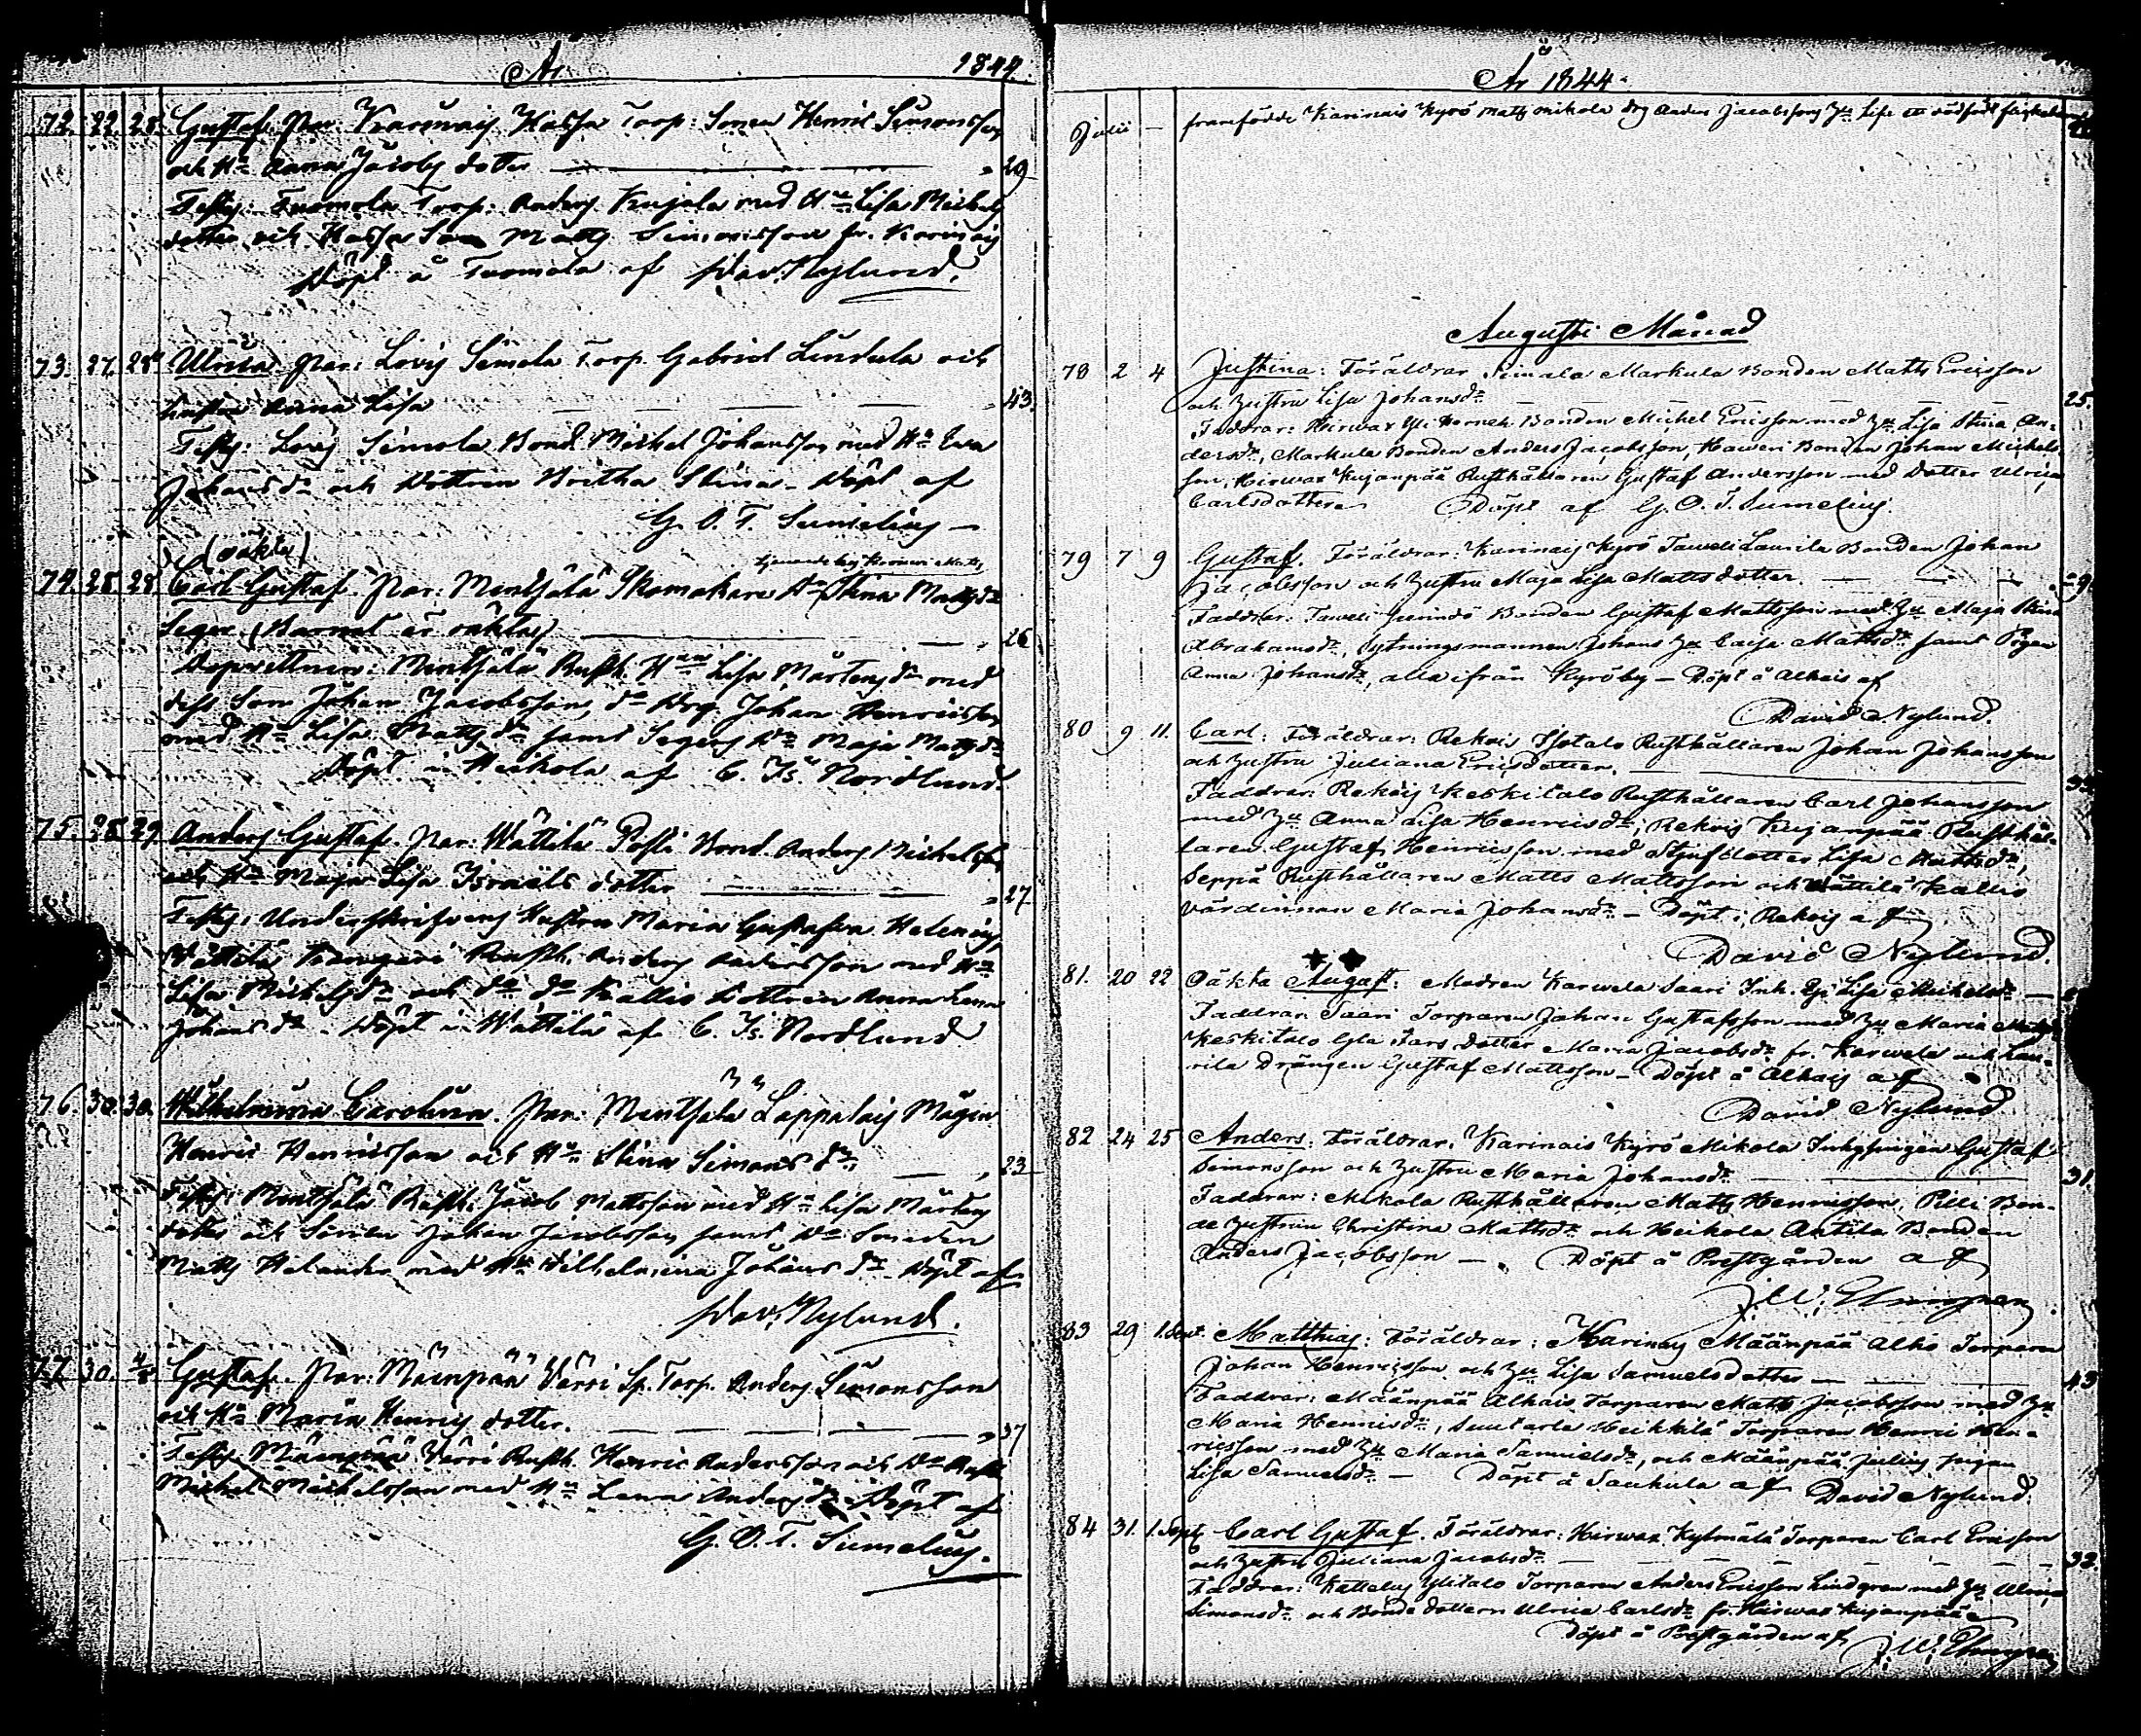 År 1844.
72. 22. 28. Gustaf. Par: Karinais Hassa Torp: Sonen Henric Simonsson
och Hu Anna Jacobs dotter 29
Testes: Tuomola Torp: Anders Kujala med Hu Lisa Michels
dotter och Hassa Son Matts Simonsson fr. Karinais
Döpt å Tuomola af Dav. Nylund.
73. 27. 28 Ulrica. Par: Lovis Simola Torp. Gabriel Lindula och
hustru Anna Lisa 43.
Testes: Lovis Simola Bond. Michel Johansson med Hu Eva
Johansdr och Dottren Britha Stina. Döpt af
G. O. T. Sumelius
(oäkta)
74. 28. 28 Carl Gustaf. Par: Mentsälä Skomakare Dr Stina Mattsdr
Seger (Barnet är oäkta) 26
Dopvittnen: Mentsälä Rusth. Hu Lisa Mårtensdr med
dess Son Johan Jacobsson, do Drg. Johan Henricsson
med Hu Lisa Mattsdr samt Segers Dr Maja Mattsdr
Döpt i Heikola af C. Fr. Nordlund.
75. 28. 29 Anders Gustaf. Par: Wättilä Posti Bond. Anders Michelsson
och Hu Maja Lisa Israels dotter 27
Testes: Underskrifvens Hustru Maria Gustafva Helenius,
Wättilä Rusth. Anders Andersson med Hu
Lisa Michelsdr och do do Kallis Dottren Anna Lena
Johansdr. Döpt i Wättilä af C. Fr. Nordlund
76. 30. 30. Wilhelmina Carolina. Par: Mentsälä Lappalais Mågen
Henric Henricsson och Hu Stina Simonsdr 23
Testes: Mentsälä Rusth: Jacob Mattsson med Hu Lisa Mårtens
dotter och Sonen Johan Jacobsson samt Smeden
Matts Helander med Hu Wilhelmina Johansdr. Döpt af
Dav. Nylund.
77. 30. 4/8 Gustaf. Par: Mäenpää Verri Sp. Torp. Anders Simonsson
och Hu Maria Henrics dotter. 37
Testes Mäenpää Verri Rusth. Henric Andersson och
Michel Michelsson med Hu Lena Andersdr. Döpt af
G. O. T. Sumelius.
År 1844.
Julii framfödde Karinais Kyrö Matts Mikola drg Anders Jacobssons Hu Lisa ett dödfödt
Augusti Månad
78 2 4 Justina: Föräldrar Simala Markula Bonden Matts Ericsson
och hustru Lisa Johansdr 25.
Faddrar: Hirwax Yli Bonden Michel Ericsson med Hu Lisa Stina An-
dersdr, Markula Bonden Anders Jacobsson, Haweri Bonden Johan Michels-
son, Hirwax Kujanpää Rusthållaren Gustaf Andersson med Dotter Ulrica
Carlsdotter Döpt af G. O. T. Sumelius.
79 7 9 Gustaf. Föräldrar: Karinais Kyrö Taweli Laurila Bonden Johan
Jacobsson och Hustru Maja Lisa Matts dotter. 9.
Faddrar: Taweli Bonden Gustaf Mattsson med Hu Maja Stina
Abrahamsdr, Sytningsmannen Johans Hu Caisa Mattsdr samt Pigan
Anna Johansdr, alla ifrån Kyröby – Döpt å Alhais af
David Nylund.
80 9 11. Carl: Föräldrar: Rekois Isotalo Rusthållaren Johan Johansson
och hustru Juliana Ericsdotter.
Faddrar: Rekois Keskitalo Rusthållaren Carl Johansson
med Hu Anna Lisa Henricsdr; Rekois Kujanpää Rusthål-
laren Gustaf Henricsson med Styfdotter Lisa Mattsdr,
Seppä Rusthållaren Matts Mattsson och Wättilä Kallis
värdinnan Maria Johansdr – Döpt i Rekois af
David Nylund.
81. 20 22 Oäkta August: Modren Karwela Saari Inh. Lisa Michelsdr
Faddrar: Saari Torparen Johan Gustafsson med Hu Maria
Keskitalo Gla Fars Dotter Maria Jacobsdr fr. Karwela och Lau-
rila Drängen Gustaf Mattsson – Döpt å Alhais af
David Nylund
82 24 25 Anders: Föräldrar: Karinais Kyrö Mikola Inhysingen Gustaf
Simonsson och hustru Maria Johansdr 31.
Faddrar: Mikola Rusthållaren Matts Henricsson, Pilli Bon-
de hustrun Christina Mattsdr och Heikola Antila Bonden
Anders Jacobsson – Döpt å Prestgården af
83 29 1.Sept. Matthias: Föräldrar: Karinais Määnpää Alho Torparen
Johan Henricsson och Hu Lisa Samuelsdotter 43
Faddrar: Määnpää Alhais Torparen Matts Jacobsson med Hu
Maria Henricsdr, Heikkilä Torparen Henric Hen-
ricsson med Hu Maria Samuelsdr, och Määnpää pigan
Lisa Samuelsdr – Döpt å Saukula af David Nylund.
84 31. 1.Sept. Carl Gustaf. Föräldrar: Hirwax Kylmälä Torparen Carl Ericsson
och hustru Juliana Jacobsdr 32.
Faddrar: Kattelus Ylitalo Torparen Anders Ericsson Lindgren med Hu Ulrica
Simonsdr och Bonde dottern Ulrica Carlsdr fr. Hirwax Kujanpää
Döpt å Prestgården af